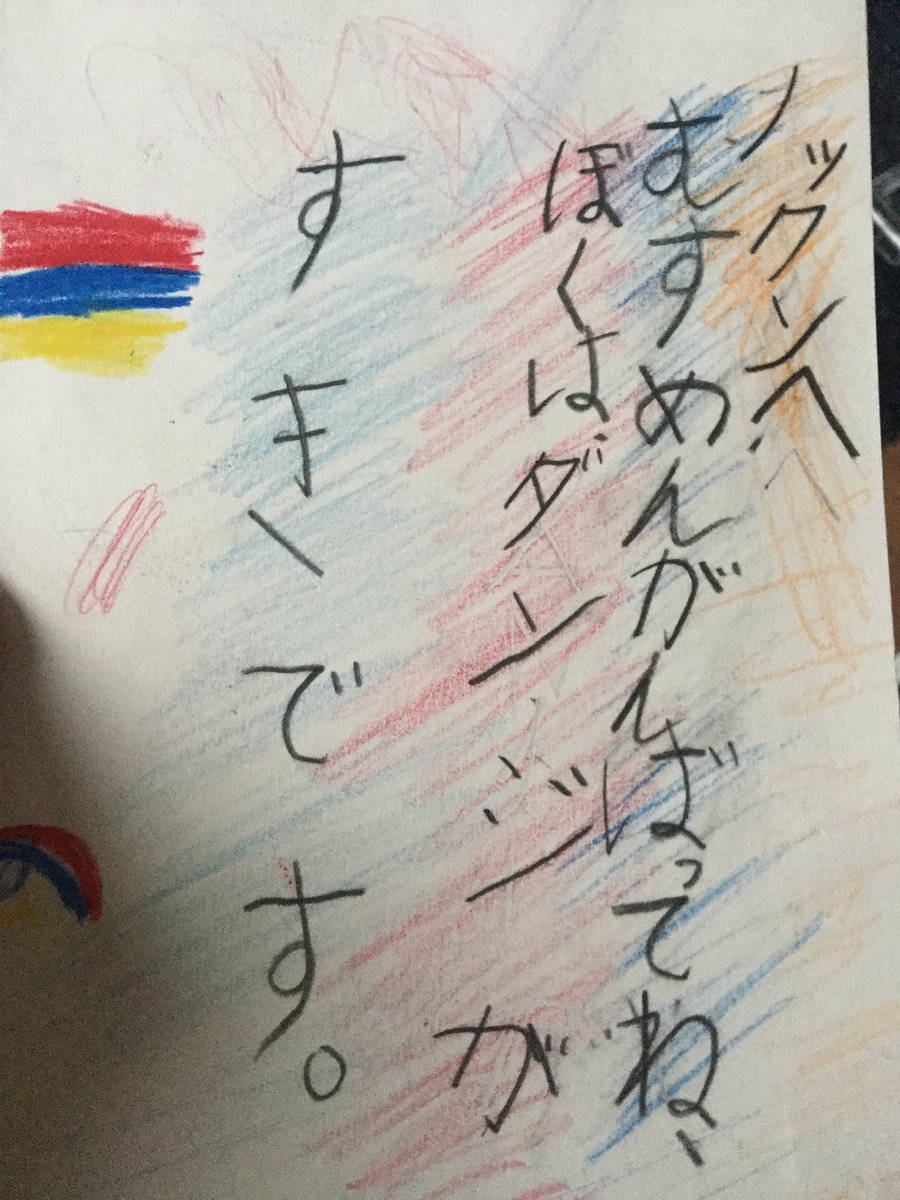 ノックンへ
むすめんがんばってね、
ぼくはダンジンが
すきです。